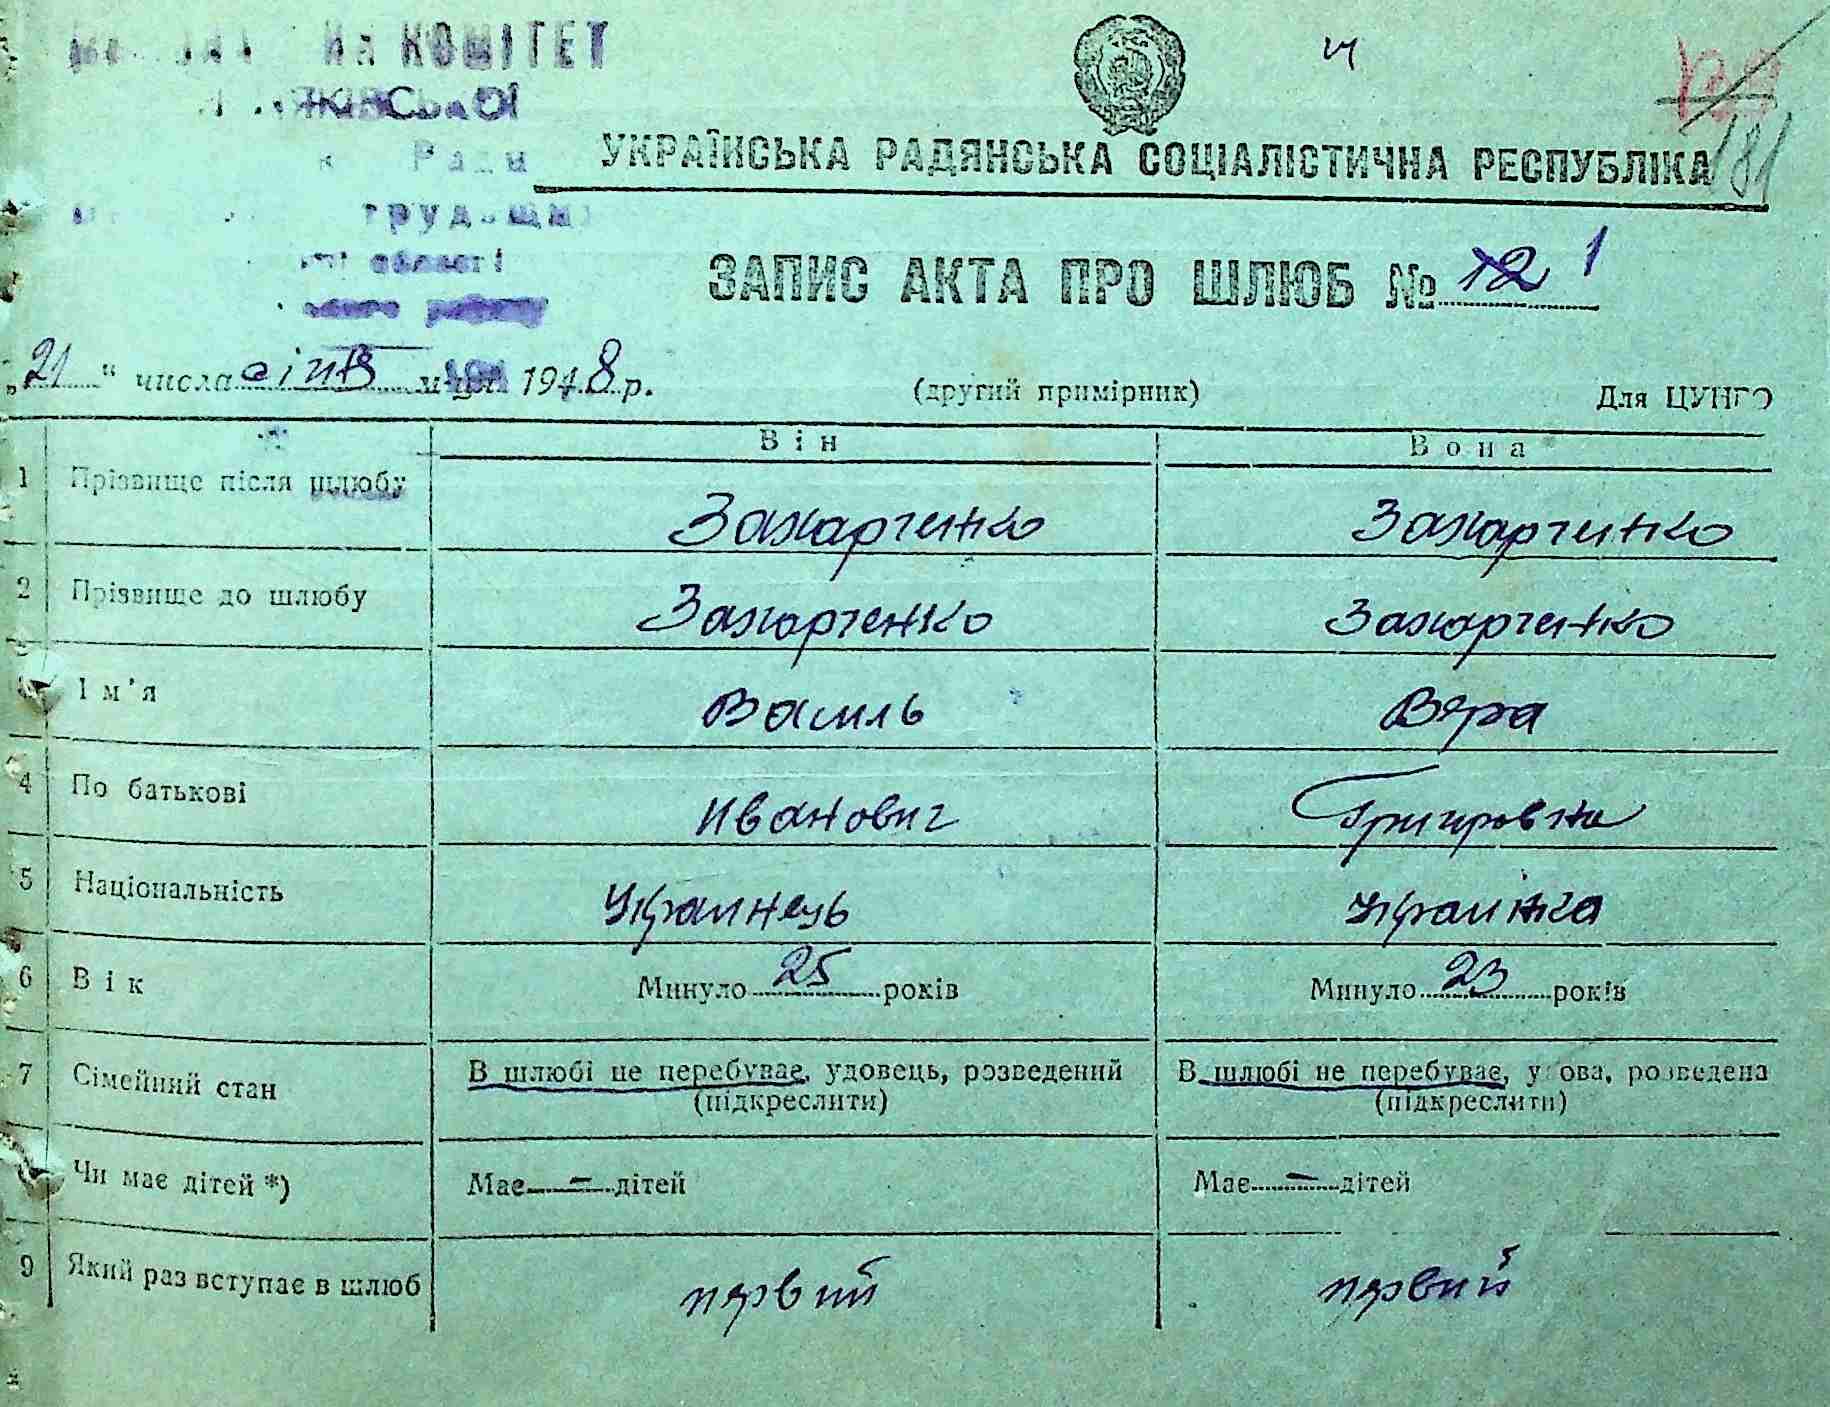 КОМІТЕТ
Ради
області
УКРАЇНСЬКА РАДЯНСЬКА СОЦІАЛІСТИЧНА РЕСПУБЛІКА
181
ЗАПИС АКТА ПРО ШЛЮБ № 12 1
„21" числа січ м-ця 1948 р.
(другий примірник)
Для ЦУНГО
Він Вона
1 Прізвище після шлюбу Захарченко Захарченко
2 Прізвище до шлюбу Захарченко Захарченко
Ім'я Василь Вера
4 По батькові Иванович Григоровна
5 Національність Украинець Украінка
6 Вік Минуло 25 років Минуло 23 років
7 Сімейний стан В шлюбі не перебуває, удовець, розведений В шлюбі не перебуває, удова, розведена
(підкреслити) (підкреслити)
Чи має дітей *) Має - дітей Має - дітей
9 Який раз вступає в шлюб первий первий